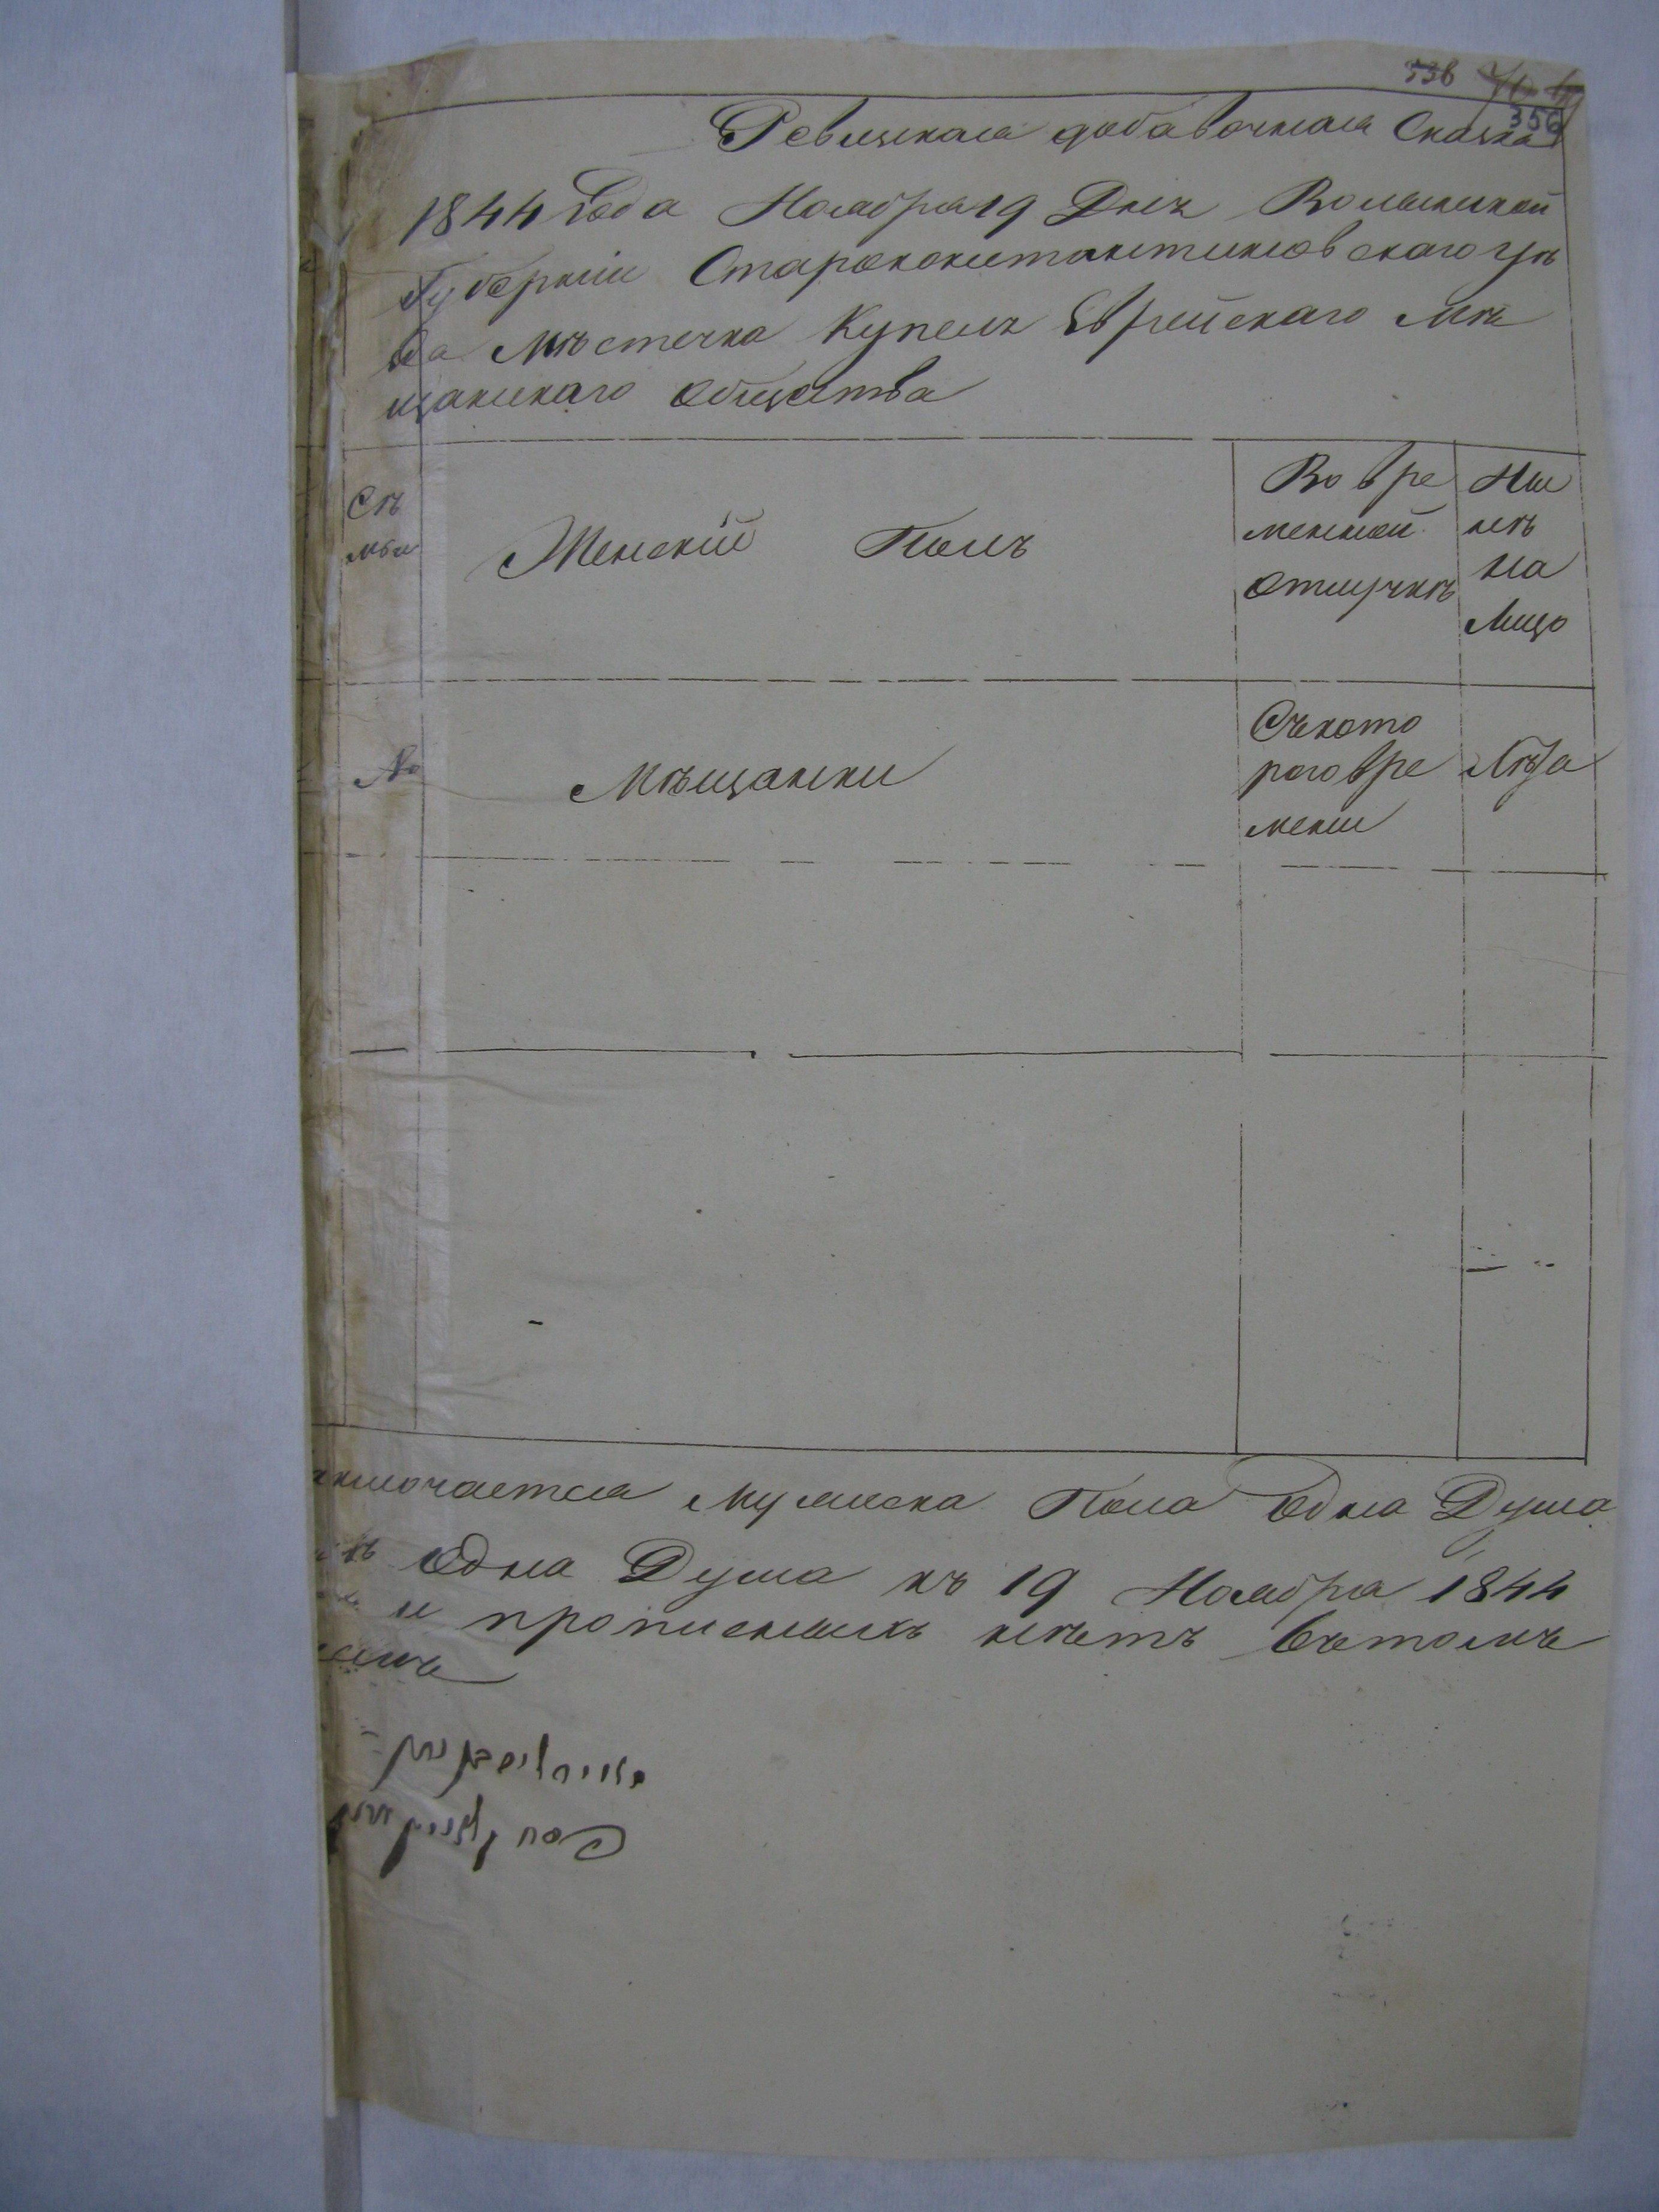 538
356
Ревизская добавочная Сказка
1844 Года Ноября 19 Дня Волынской
Губерніи Староконстантиновскаго уѣ
зда мѣстечка Купеля Еврейскаго Мѣ
щанскаго Общества
Сѣ
мьи
Женскій Полъ
Во вре
менной
Отлучкѣ
Ны
нѣ
на
Лицо
№
Мѣщанки
Съкото
раго вре
мени
Лѣта
аключается Мужеска Пола Одна Душа
Одна Душа къ 19 Ноября 1844
и прописныхъ нѣтъ вътомъ